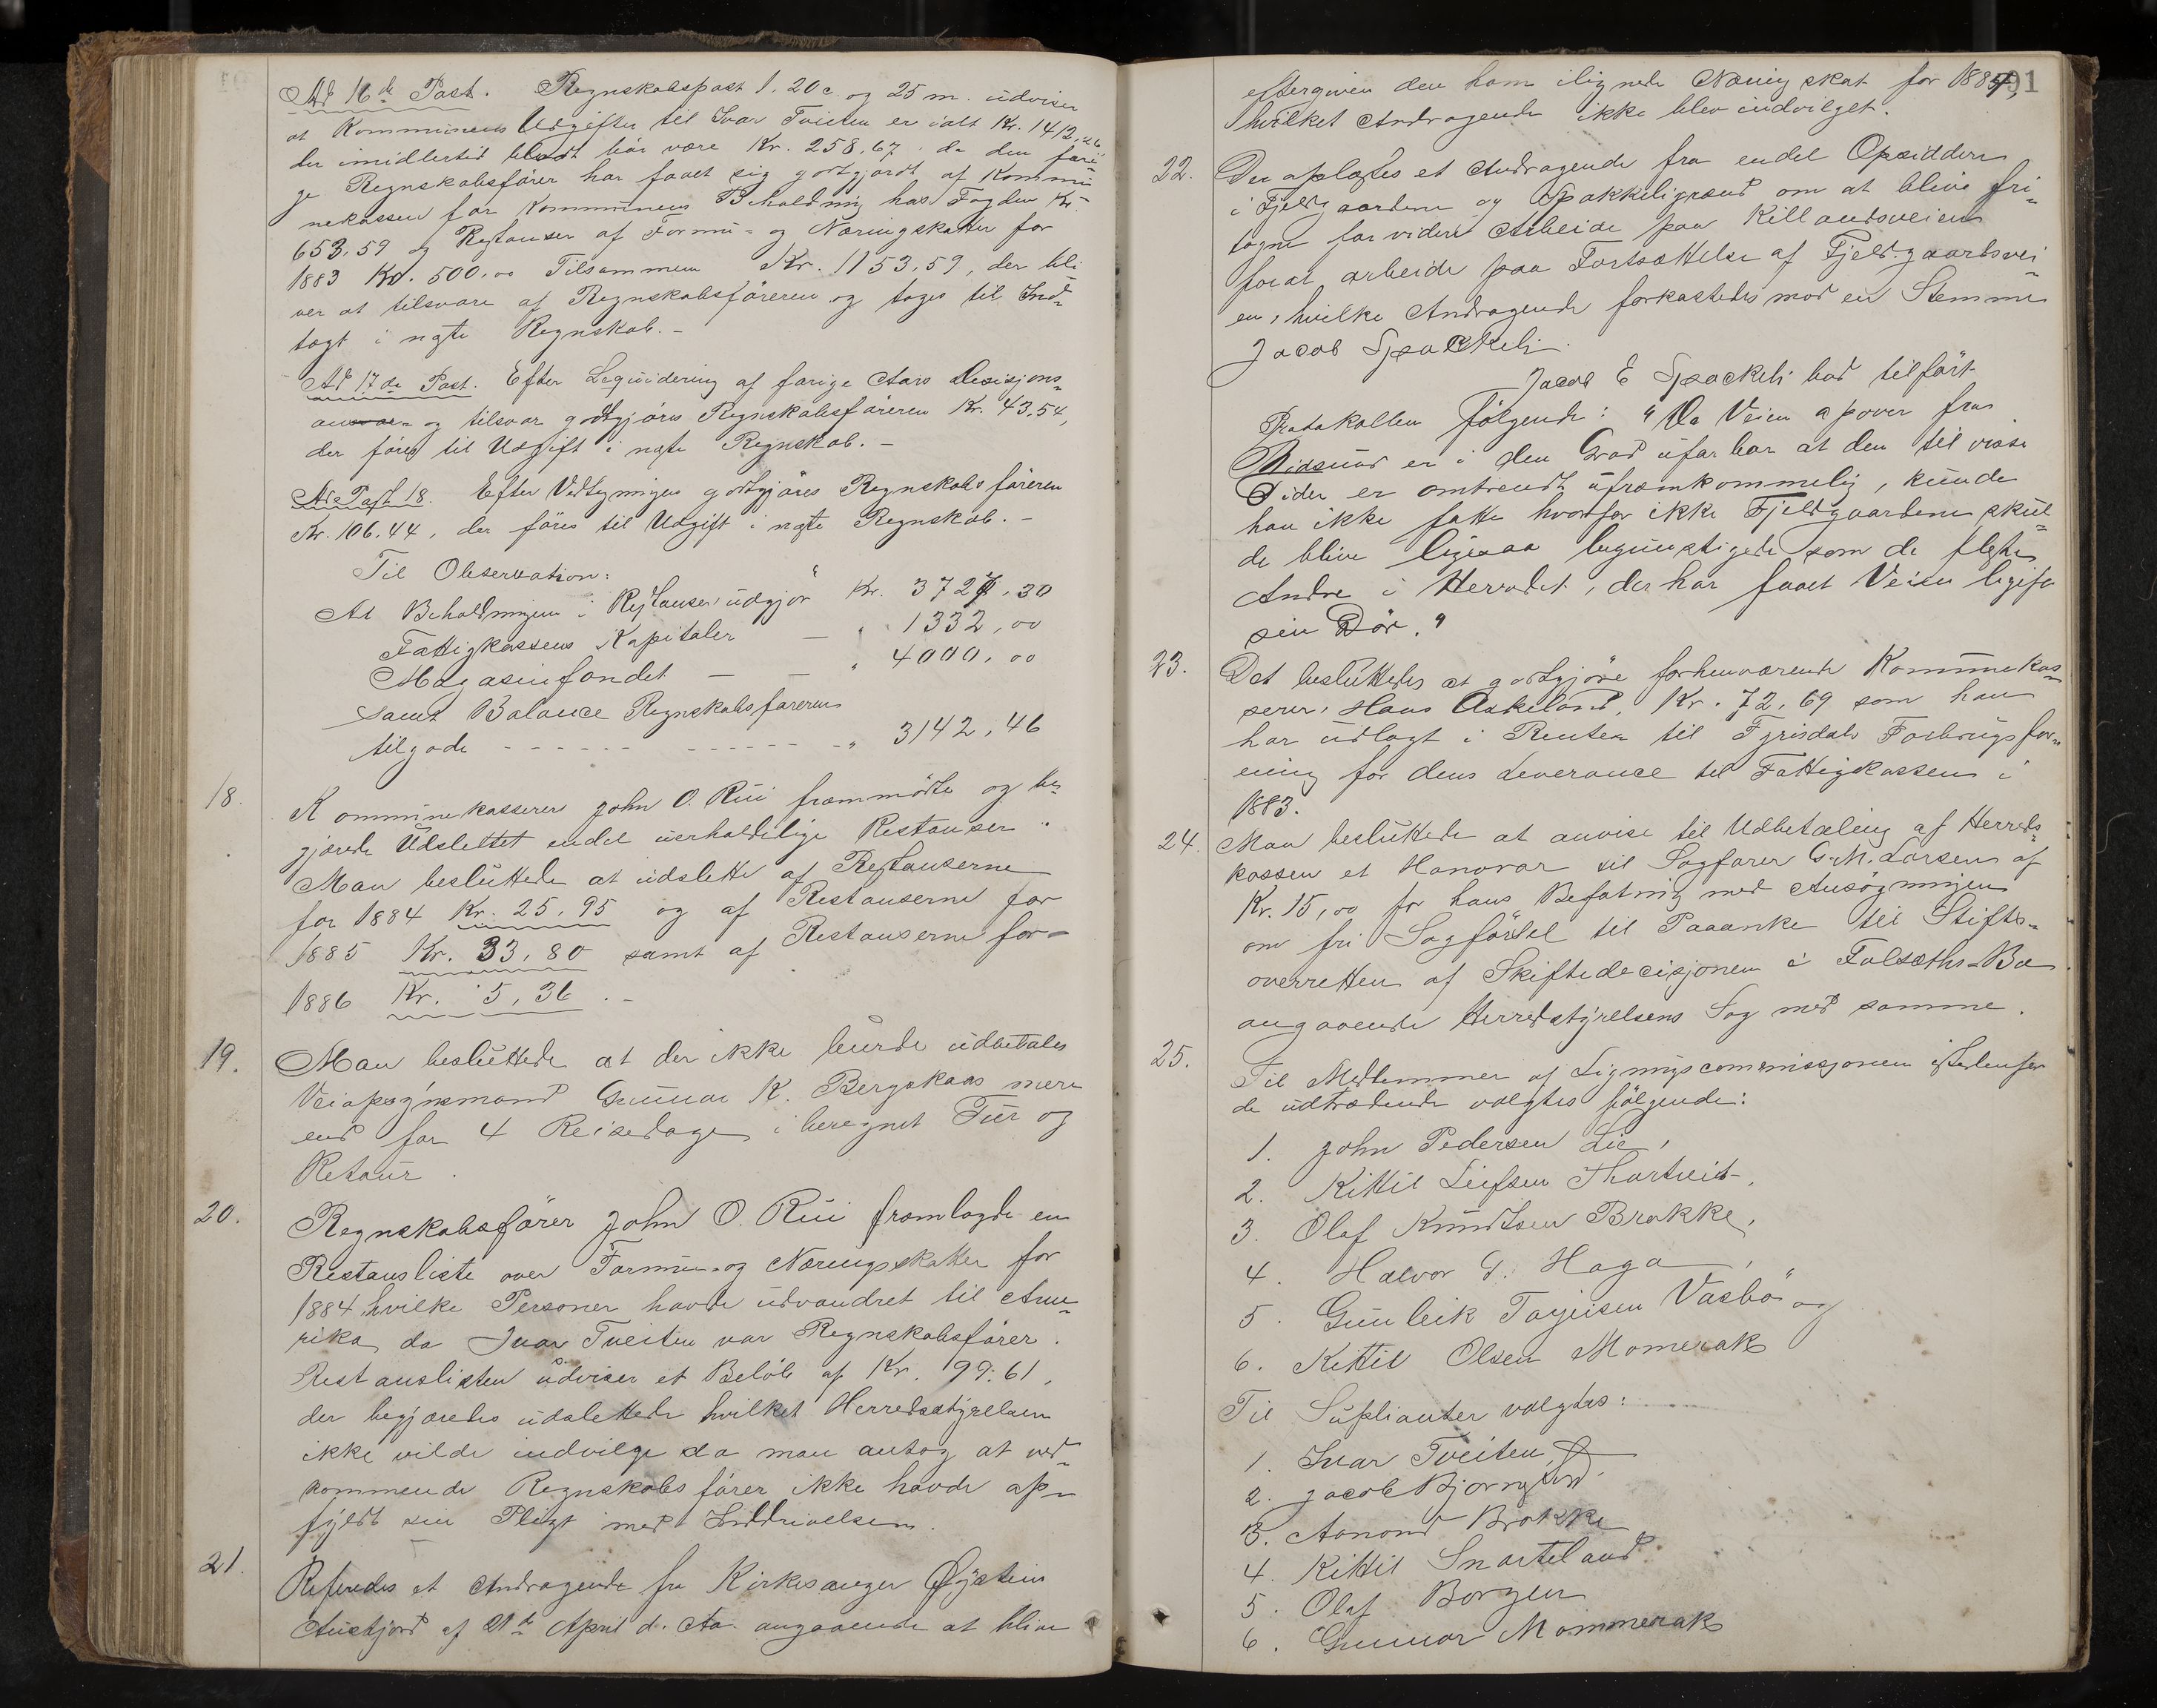 Ad 16de Post. Regnskabspost 1, 20 c. og 25 m. udviser
at Kommunens Udgifter til Ivar Tveiten er ialt Kr. 1412,26
der imidlertid blodt bør være Kr. 258,67. da den fori-
ge Regnskabsfører har faaet sig godtgjordt af Kommu-
nekassen for Kommunens Beholdning hos Fogden Kr.
653,59 og Restanser af Formu- og Næringskatter for
1883 Kr. 500,00 Tilsammen Kr. 1153,59, der bli-
ver at tilsvare af Regnskabsføreren og tages til Ind-
tægt i næste Regnskab. -
Ad 17de Post. Efter Lequidering af forige Aars Desisjons-
og tilsvar godtgjøres Regnskabsføreren Kr. 43,54,
der føres til Udgift i næste Regnskab. -
Ad Post 18. Efter Vedtegningen godtgjøres Regnskabsføreren
Kr. 106,44, der føres til Udgift i næste Regnskab. -
Til Observation:
At Beholdningen i Restanser udgjør Kr. 3727,30
Fattigkassens Kapitaler — " 1332,00
Magasinfondet — — " 4000,00
samt Balance Regnskabsføreren
tilgode - - - - - - - - - - - - " 3142,46
18. Kommunekasserer John O. Rui fremmødte og be-
gjærede Udslettet endel uerholdelige Restanser.
Man besluttede at udslette af Restanserne
for 1884 Kr. 25,95 og af Restanserne for
1885 Kr. 33,80 samt af Restanserne for
1886 Kr. 5,36. -
19. Man besluttede at der ikke burde udbetales
Veiopsynsmand Gunnar K. Bergskaas mere
end for 4 Reisedage iberegnet Tur og
Retour.
20. Regnskabsfører John O. Rui fremlagde en
Restansliste over Formu- og Næringsskatter for
1884 hvilke Personer havde udvandret til Ame-
rika da Ivar Tveiten var Regnskabsfører.
Restanslisten udviser et Beløb af Kr. 99:61,
der begjæredes udslettede hvilket Herredsstyrelsen
ikke vilde indvilge da man antog at ved-
kommende Regnskabsfører ikke havde op-
fyldt sin Pligt med Inddrivelsen.
21. Referedes et Andragende fra Kirkesanger Øystein
Austjord af 21de April d. Aa. angaaende at blive
91
eftergiven den ham ilignede Næring skat for 1884,
hvilket Andragende ikke blev indvilget.
22. Der oplæstes et Andragende fra endel Opsiddere
i Fjeldgaardene og Spokkeligrend om at blive fri-
tagne for videre Arbeide paa Killandsveien
for at arbeide paa Fortsættelse af Fjeldgaardsvei-
en, hvilke Andragende forkastedes mod en Stemme
Jacob Spockeli.
Jacob E Spockeli bad tilført
Protokollen følgende: "Da Veien opover fra
Bidsund er i den Grad ufarbar at den til visse
Tider er omtrendt ufremkommelig, kunde
han ikke fatte hvorfor ikke Fjeldgaardene skul-
de blive ligesaa begunstigede som de fleste
Andre i Herredet, der har faaet Veien ligefor
sin Dør."
23. Det besluttedes at godtgjøre forhenværende Kommunekas-
serer, Hans Askeland, Kr. 72,69 som han
har udlagt i Renter til Fyrisdals Forbrugsfor-
ening for dens Leverance til Fattigkassen i
1883.
24. Man besluttede at anvise til Udbetaling af Herreds-
kassen et Honorar til Sagfører G. M. Larsen af
Kr. 15,00 for hans Befatning med Ansøgningen
om fri Sagførsel til Paaanke til Stifts-
overretten af Skiftedecisjonen i Folsæths Bo
angaaende Herredstyrelsens Sag med samme.
25. Til Medlemmer af Ligningscommissjonen istedenfor
de udtrædende valgtes følgende:
1. John Pedersen Lie,
2. Kittil Liefsen Thortveit,
3. Olaf Knudtsen Brokke,
4. Halvor G. Haga,
5. Gunleik Tarjeisen Vasbø og
6. Kittil Olsen Momerak
Til Suplianter valgtes:
1. Ivar Tveiten,
2. Jacob Bjørnylend
3. Aanond Brokke
4. Kittil Snarteland
5. Olaf Borgen
6. Gunnar Mommerak